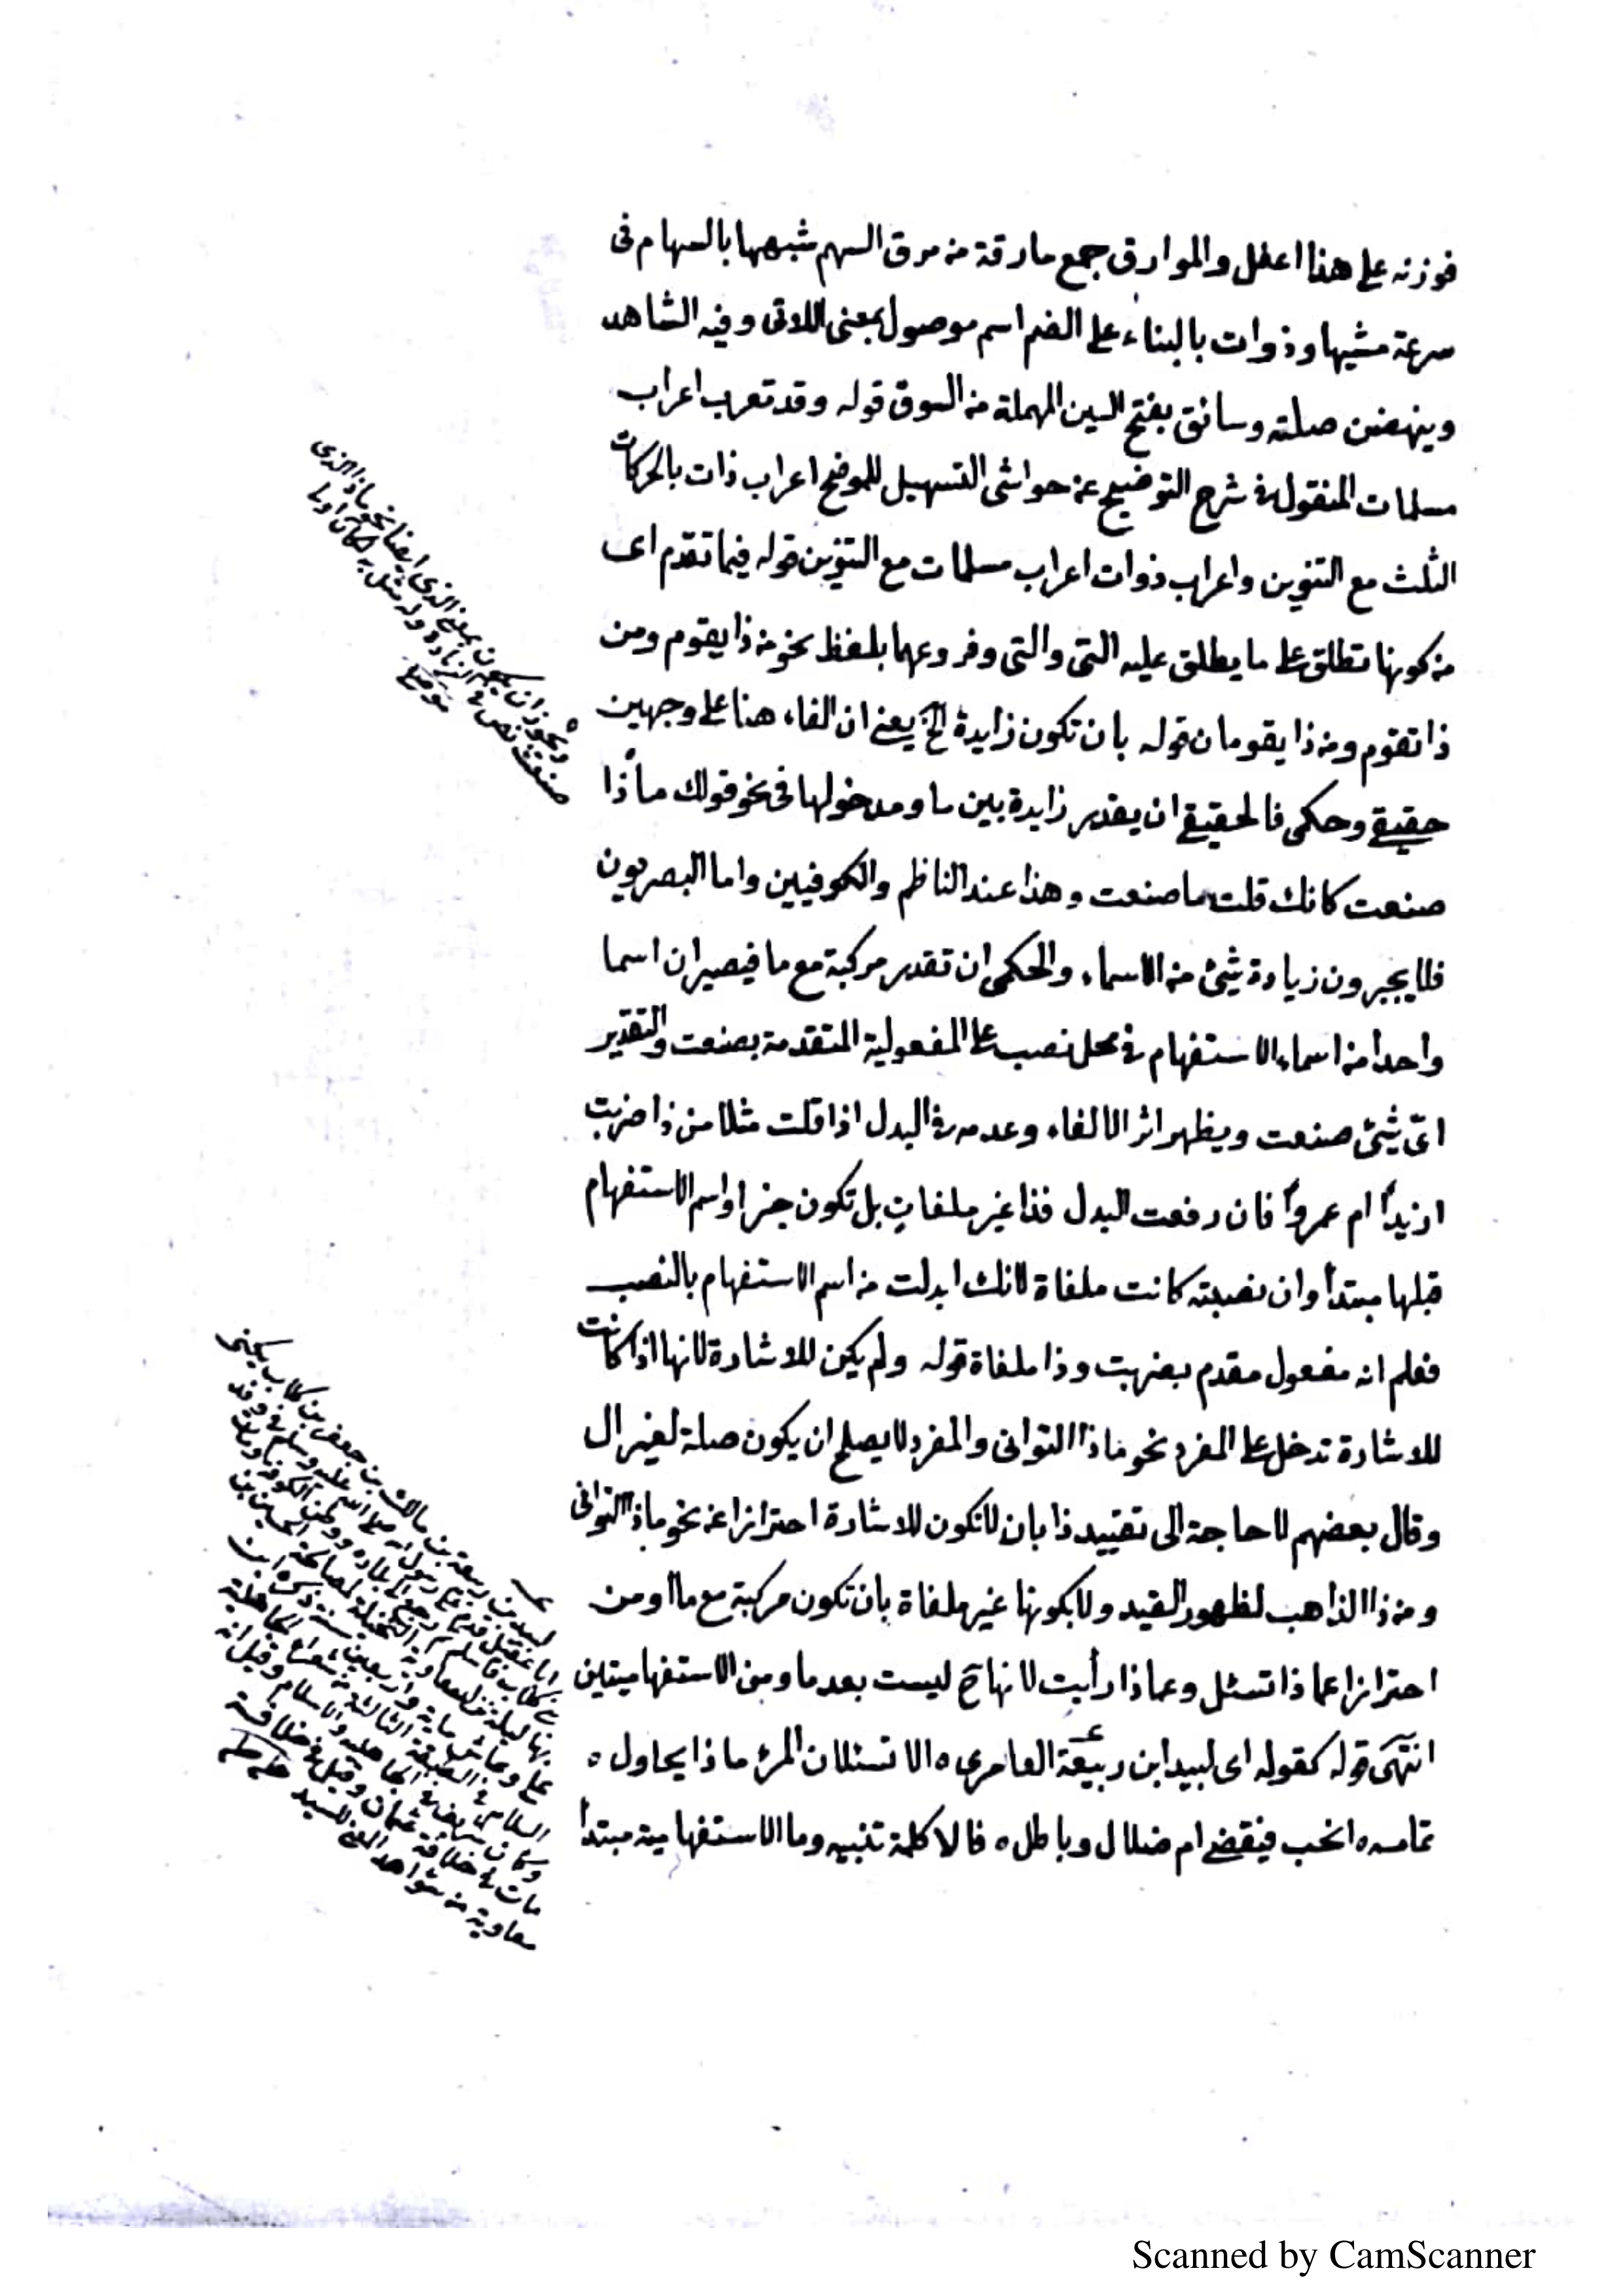 فوزنه على هذا اعفل والموارق جمع مارقة من مرق السهم شبهها بالسهام فى
سرعة مشيها وذوات بالبناء على الضم اسم موصول بمعنى اللاتى وفيه الشاهد
وينهضن صلته وسائق بفتح السين المهملة من السوق قوله وقد تعرب اعراب
مسلمات المنقول فى شرح التوضيح عن حواشى التسهيل للموضح اعراب ذات بالحركات
الثلث مع التنوين واعراب ذوات اعراب مسلمات مع التنوين قوله فيما تقدم اى
من كونها تطلق على ما يطلق عليه التى والتى وفروعهما بلفظ نحو من ذا يقوم ومن
ذا تقوم ومن ذا يقومان قوله بان تكون زايدة الخ يعنى ان الغاء هنا على وجهين
حقيقى وحكمى فالحقيقى ان يقدر زايدة بين ما ومدخولها فى نحو قولك ماذا
صنعت كانك قلت ما صنعت وهذا عند الناظم والكوفيين واما البصريون
فلا يجيزون زيادة شئ من الاسماء والحكمى ان تقدر مركبة مع ما فيصيران اسما
واحدا من اسماء الاستفهام فى محل نصب على المفعولية المتقدمة بصنعت والتقدير
اىّ شئ صنعت ويظهر اثر الالغاء وعدمه فى البدل اذا قلت مثلا من ذا ضربت
ازيداً ام عمرواً فان رفعت البدل فذا غير ملغات بل تكون خبرا واسم الاستفهام
قبلها مبتدأ وان نصبته كانت ملغاة لانك ابدلت من اسم الاستفهام بالنصب
فعلم انه مفعول مقدم بضربت وذا ملغاة قوله ولم يكن للاشارة لانها اذا كانت
للاشارة تدخل على المفرد نحو ماذا التوانى والمفرد لا يصلح ان يكون صلة لغير ال
وقال بعضهم لا حاجة الى تقييد ذا بان لا تكون للاشارة احترازا عن نحو ماذا التوانى
ومن ذا الذاهب لظهور القيد ولا بكونها غير ملغاة بان تكون مركبة مع ما او من
احترازا عما ذا تسئل وعما ذا رأيت لانها ح ليست بعد ما ومن الاستفهاميتين
انتهى قوله كقوله اى لبيد ابن ربيعة العامرى ه الا تسئلان المرء ماذا يحاول ه
تمامه ه انحب فيقضى ام ضلال وباطل ه فالا كلمة تنبيه وما الاستفهامية مبتدأ
ويجوز ان يكون بمعنى الذى ايضا نحو ماذا الذى
صنعت نص فى
توضيح
ربيعة بن مالك بن جعفر بن كلاب يكنى
ابا عقيل قدم على رسول الله صلى الله عليه وسلم فى وفد
مات فى خلافة عثمان وقيل فى خلافة
معاوية من شواهد العينى للسيد
Scanned by CamScanner